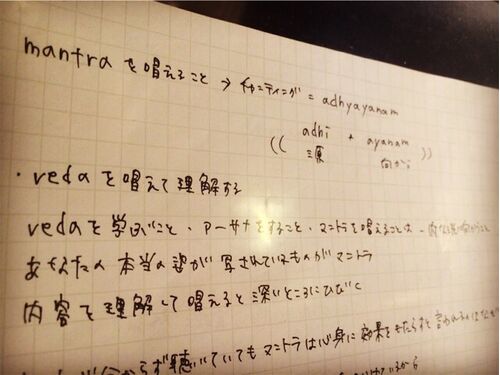 mantraを唱えること → チャンティング = adhyayanam
(( adhi + ayanam ))
源 向かう
・vedaを唱えて理解する
vedaを学ぶこと、アーサナをすること、マントラを唱えることは
あなたの本当の姿が写されているものがマントラ
内容を理解して唱えると深いところにひびく
からず聴いていてもマントラは心身に効果をもたらすと言われ